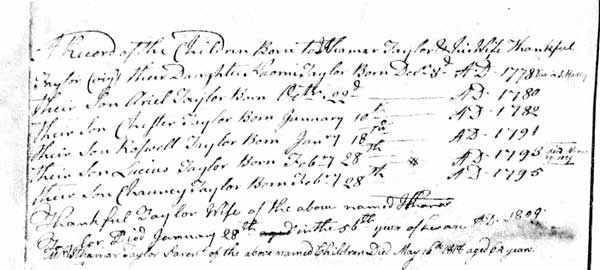 A Record of the Children Born to Ithamar Taylor & his Wife Thankful
Taylor (viz) their Daughter Naomi Taylor Born Decr 8d AD. 1778
their Son Ariel Taylor Born Octbr 22d AD. 1780
their Son Chester Taylor Born January 10th AD. 1782
their Son Roswell Taylor Born Janry 18th AD. 1791
their Son Lucius Taylor Born Febry 28th AD. 1793
their Son Chauncy Taylor Born Febry 28th AD. 1795
Thankful Taylor Wife of the above named Ithamar
Taylor Died January 28th aged in the 56th year of her age AD. 1809.
Ithamar Taylor Parent of the above named Children Died May 16th aged 62 years.